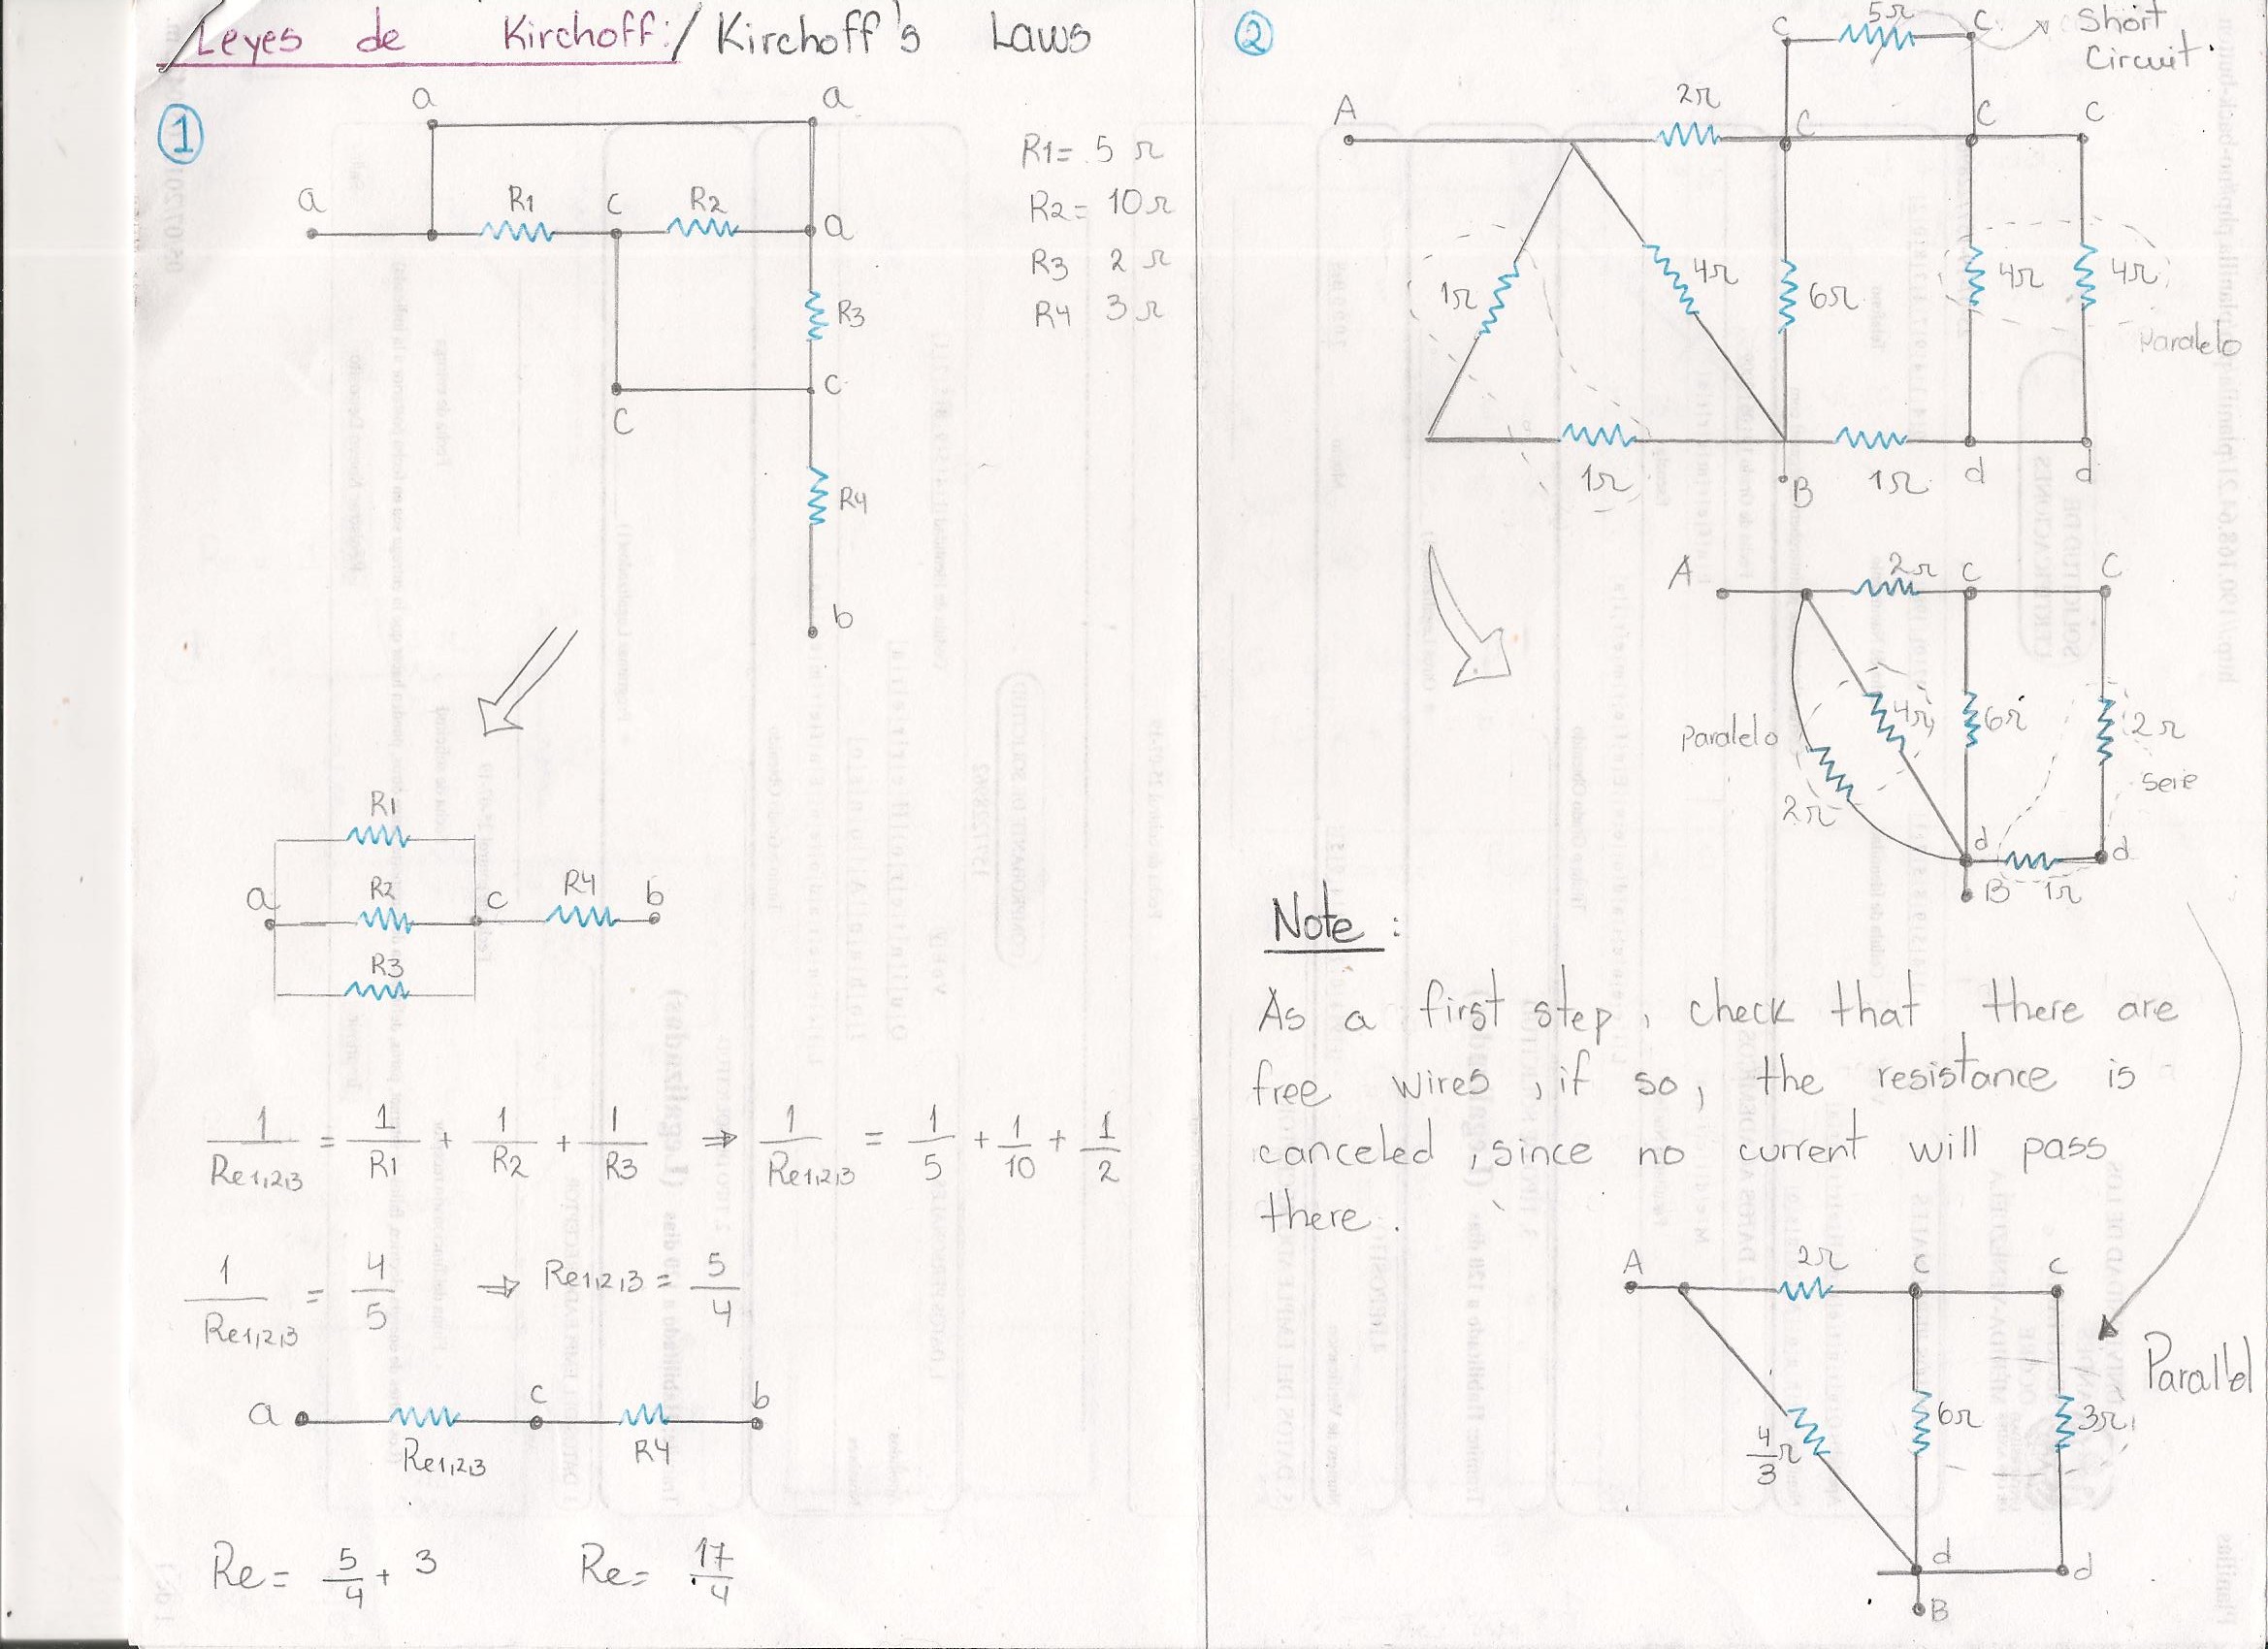 Leyes de Kirchoff:/Kirchoff's Laws
1
a a
a R1 c R2 a
R1= 5 Ω
R2= 10 Ω
R3 2 Ω
R4 3 Ω
R3
c
C
R4
b
R1
a R2 c R4 b
R3
1/Re1,2,3 = 1/R1 + 1/R2 + 1/R3 ⇒ 1/Re1,2,3 = 1/5 + 1/10 + 1/2
1/Re1,2,3 = 4/5 ⇒ Re1,2,3 = 5/4
a c b
Re1,2,3 R4
Re= 5/4 + 3 Re= 17/4
2
c 5Ω c Short
Circuit.
A 2Ω c c c
1Ω 4Ω 6Ω 4Ω 4Ω
Paralelo
1Ω B 1Ω d d
A 2Ω c C
Paralelo 4Ω 6Ω 2Ω
Serie
2Ω
d d
B 1Ω
Note:
As a first step, check that there are
free wires, if so, the resistance is
canceled, since no current will pass
there.
A 2Ω c c
Parallel
4/3Ω 6Ω 3Ω
d d
B